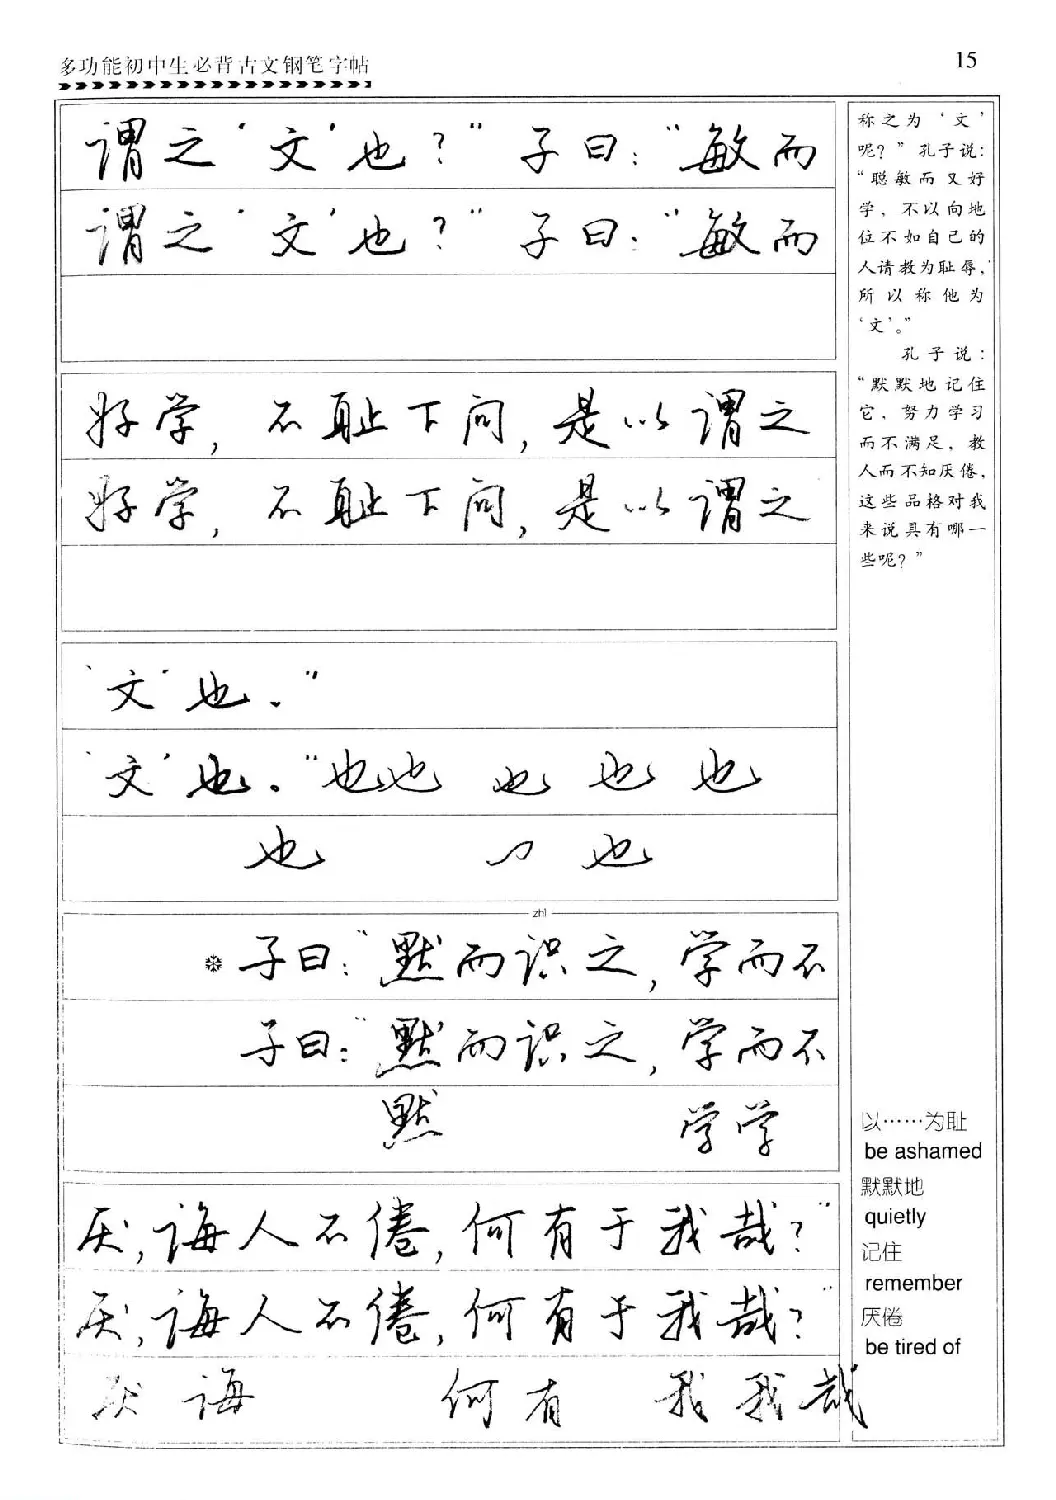 多功能初中生必背古文钢笔字帖
15
谓之‘文’也？”子曰：“敏而
谓之‘文’也？”子曰：“敏而
好学，不耻下问，是以谓之
好学，不耻下问，是以谓之
‘文’也。”
‘文’也。”也也 也 也 也
也 也
zhì
子曰：“默而识之，学而不
子曰：“默而识之，学而不
默 学学
厌，诲人不倦，何有于我哉？”
厌，诲人不倦，何有于我哉？”
厌 诲 何有 我 我 哉
称之为‘文’
呢？”孔子说：
“聪敏而又好
学，不以向地
位不如自己的
人请教为耻辱，
所以称他为
‘文’。”
孔子说：
“默默地记住
它，努力学习
而不满足，教
人而不知厌倦，
这些品格对我
来说具有哪一
些呢？”
以……为耻
be ashamed
默默地
quietly
记住
remember
厌倦
be tired of